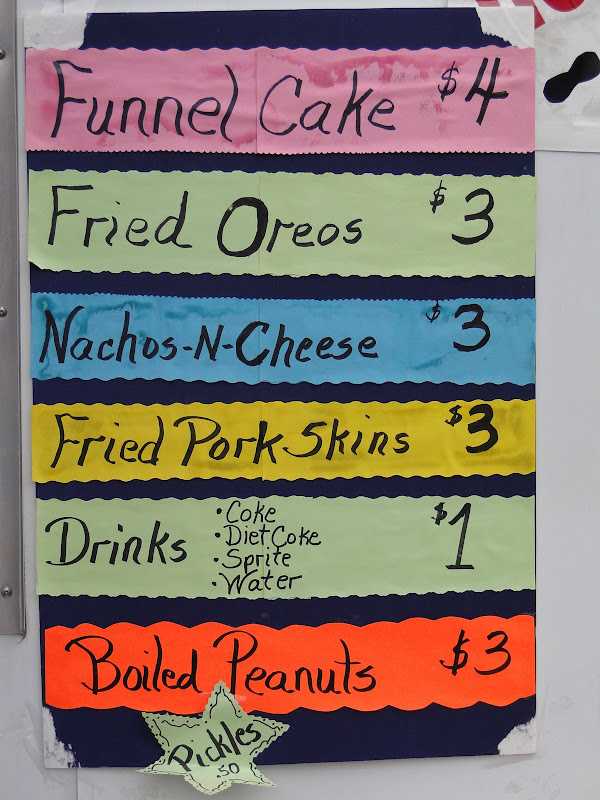 Funnel Cake $4
Fried Oreos $3
Nachos-N-Cheese $3
Fried Pork Skins $3
Drinks $1
• Coke
• Diet Coke
• Sprite
• Water
Boiled Peanuts $3
Pickles
.50